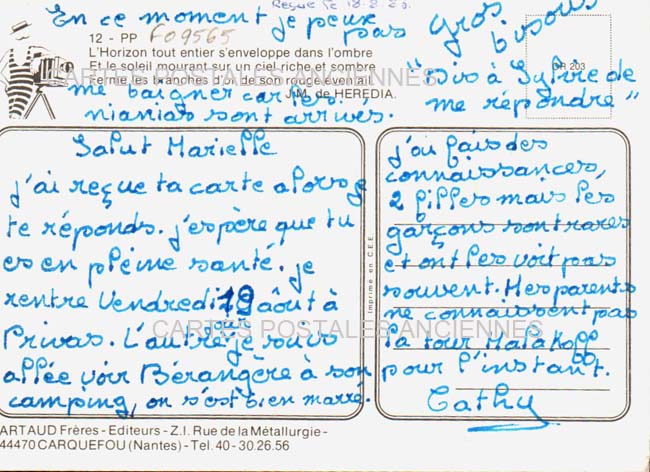 Reçue le 18.8.
En ce moment je peux pas
gros bisous
12 - PP F09565
L'Horizon tout entier s'enveloppe dans l'ombre
Et le soleil mourant sur un ciel riche et sombre
Ferme les branches d'or de son rouge éventail.
J.M. de HEREDIA.
GR 203
CARTES POSTALES ANCIENNES
me baigner car les
nianias sont arrivés.
"Dis à Sylvie de
me répondre"
Salut Marielle
j'ai reçue ta carte alors je
te réponds. j'espère que tu
es en pleine santé. je
rentre Vendredi 19 aôut à
Privas. L'autre jour je suis
allée voir Bérangère à son
camping, on s'est bien marré.
j'ai fais des
connaissances,
2 filles mais les
garçons sont rares
et ont les voit pas
souvent. Mes parents
ne connaissent pas
la tour Malakoff
pour l'instant.
Cathy
Imprimé en C.E.E.
CARTES POSTALES ANCIENNES
ARTAUD Frères - Editeurs - Z.I. Rue de la Métallurgie -
44470 CARQUEFOU (Nantes) - Tel. 40 - 30.26.56